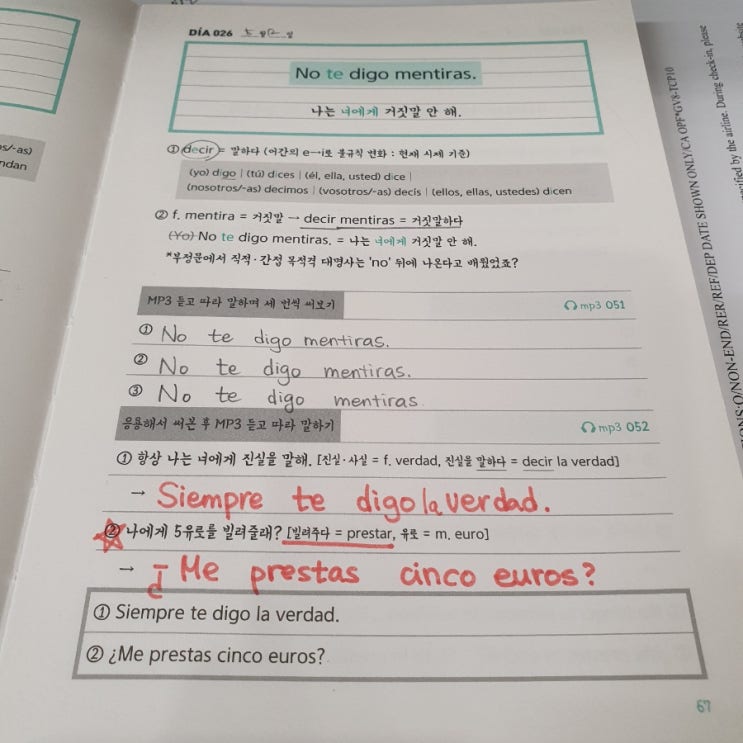 os/-as)
ndan
DÍA 026
No te digo mentiras.
나는 너에게 거짓말 안 해.
① decir = 말하다 (어간의 e→i로 불규칙 변화 : 현재 시제 기준)
(yo) digo | (tú) dices | (él, ella, usted) dice |
(nosotros/-as) decimos | (vosotros/-as) decís | (ellos, ellas, ustedes) dicen
② f. mentira = 거짓말 → decir mentiras = 거짓말하다
(Yo) No te digo mentiras. = 나는 너에게 거짓말 안 해.
*부정문에서 직적·간성 목적격 대명사는 'no' 뒤에 나온다고 배웠었죠?
MP3 듣고 따라 말하며 세 번씩 써보기
mp3 051
① No te digo mentiras.
② No te digo mentiras.
③ No te digo mentiras
응용해서 써본 후 MP3 듣고 따라 말하기
mp3 052
① 항상 나는 너에게 진실을 말해. [진실·사실 = f. verdad, 진실을 말하다 = decir la verdad]
→ Siempre te digo la verdad.
② 나에게 5유로를 빌려줄래? [빌려주다 = prestar, 유로 = m. euro]
→ ¿Me prestas cinco euros?
① Siempre te digo la verdad.
② ¿Me prestas cinco euros?
67
ecified by the airline. During check-in, please
DATE SHOWN ONLY/CA OPF*GV8-TCP10
IONS:O/NON-END/RER/REF/DEP